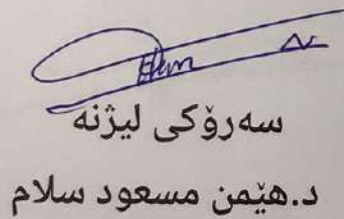 سەرۆکی لیژنە
د.هێمن مسعود سلام